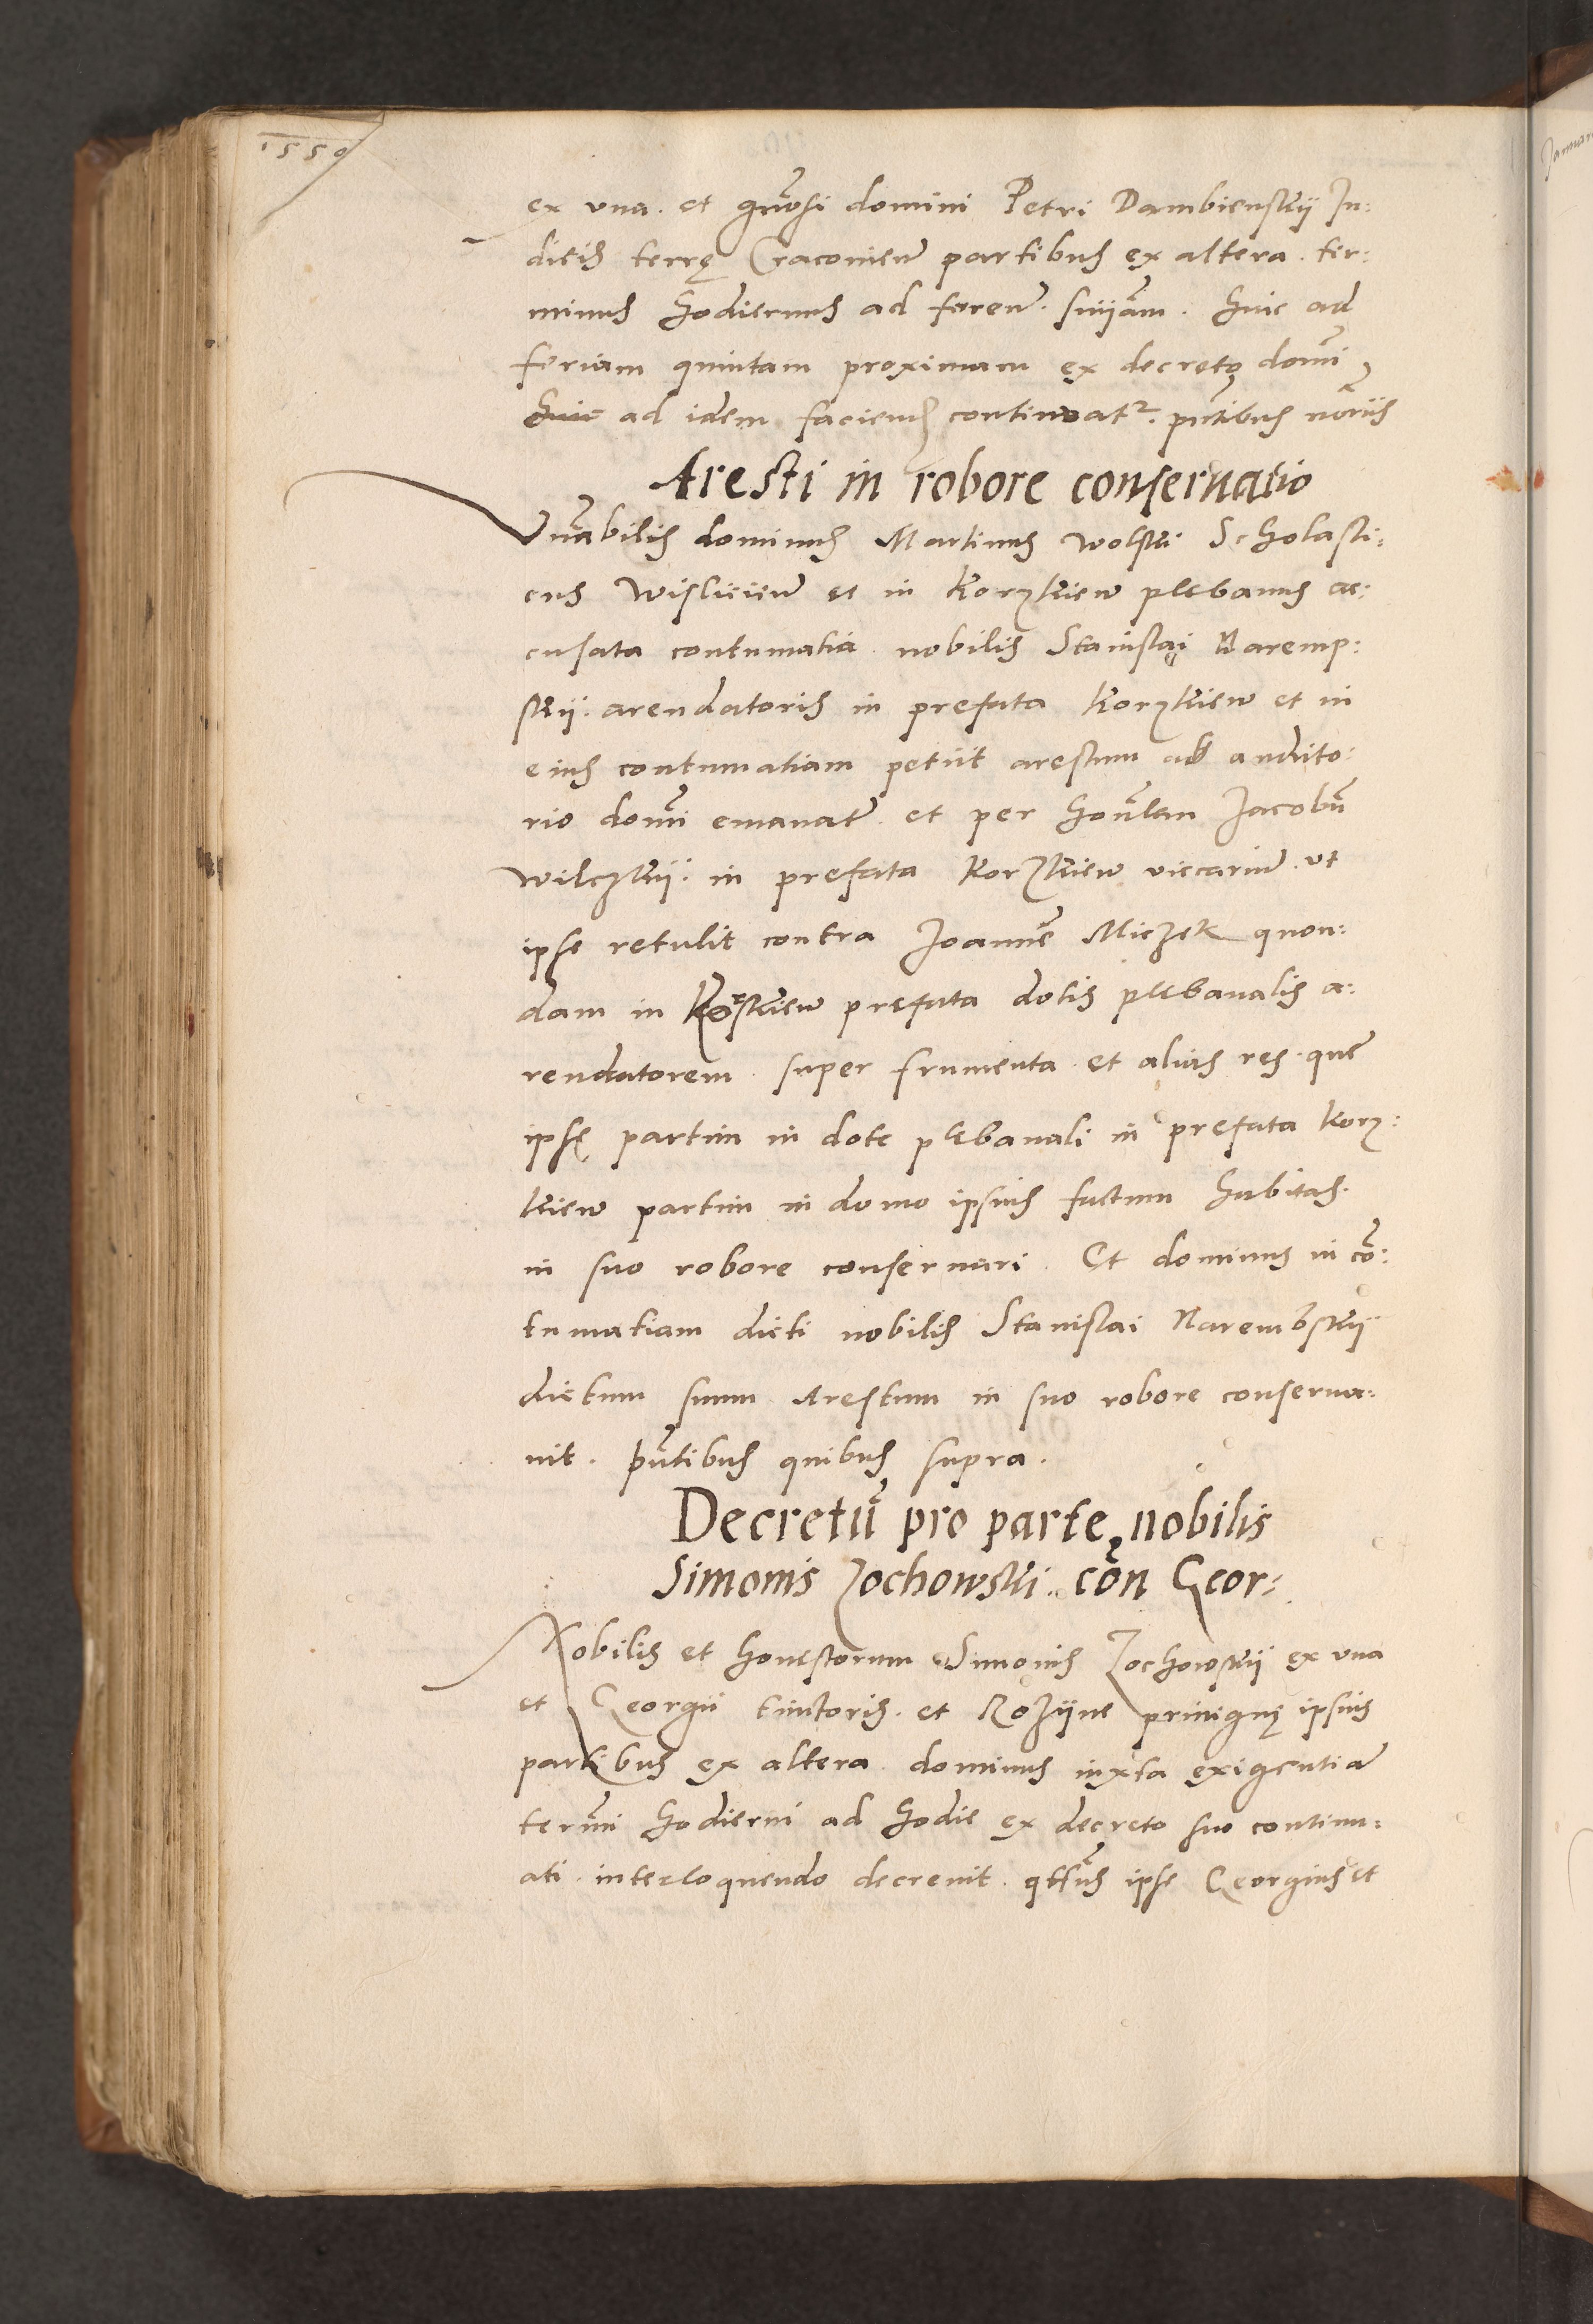 1550
ex vna et gn̄osi domini Petri Dambienskij Iu:
dicis terrę Cracovien̄ partibus ex altera ter:
minus hodiernus ad feren̄. sn̄iam. huic ad
feriam quintam proximam ex decreto domī
huic ad idem faciend continuat̄. pn̄tibus notr̄iis
Aresti in robore conseruatio
Vn̄abilis dominus Martinus Wolski Scholasti:
cus Wisliciēn et in Korzkiew plebanus ac:
cusata contumatia nobilis Stanislai Naremp:
skij arendatoris in prefata Korzkiew et in
eius contumatiam petiit arestum ab audito:
rio domī emanatū et per hon̄lem Jacobū
Wilczkij in prefata Korzkiew viccariū vt
ipse retulit contra Joannē Miczek quon:
dam in Korzkiew prefata dotis plebanalis a:
rendatorem super frumenta et alias res que
ipsę partim in dote plebanali in prefata Korz:
kiew partim in domo ipsius factum habitas
in suo robore conseruari. Et dominus in cō:
tumatiam dicti nobilis Stanislai Narembskij
dictum suum Arestum in suo robore conserua:
uit. pn̄tibus quibus supra.
Decretū pro parte nobilis
Simonis Zochowski cōn Geor:
Nobilis et honestorum Simonis Zochowskij ex vna
et Georgii tinctoris et Rozijne priuignę ipsius
partibus ex altera dominus iuxta exigentiā
termī hodierni ad hodie ex decreto suo continu:
ati interloquendo decreuit qt̄nus ipse Georgius et
Januar